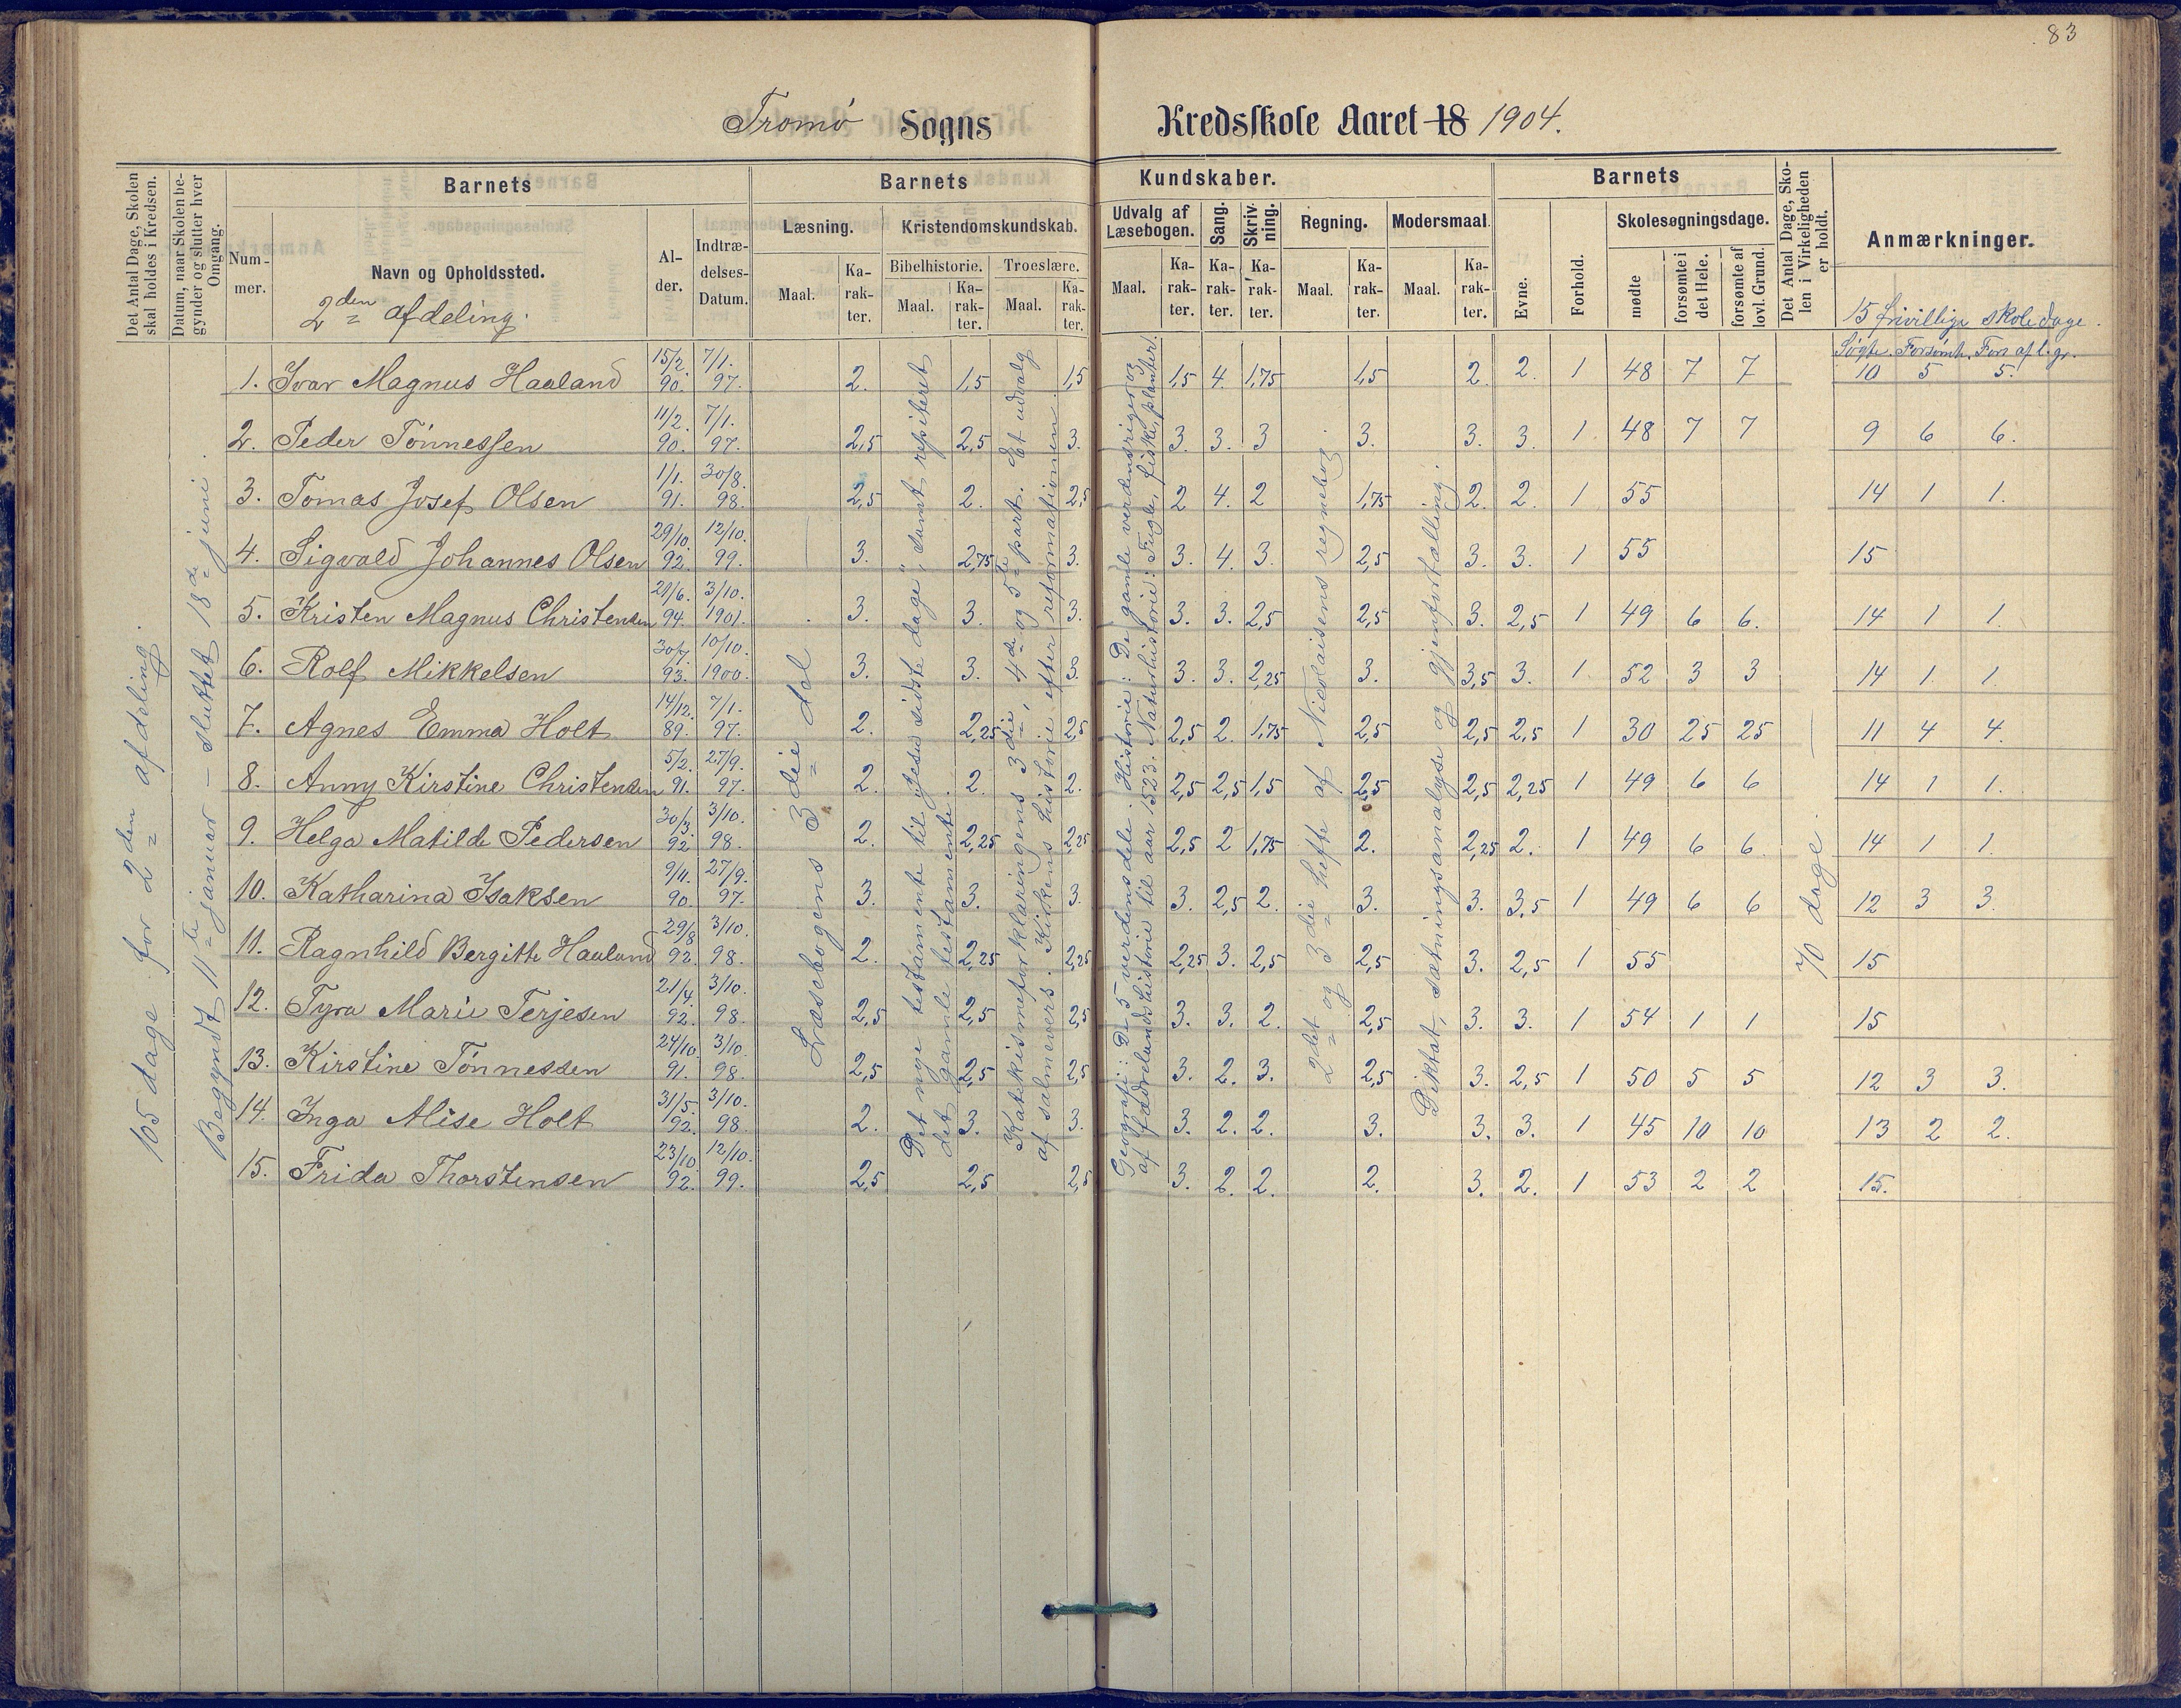 83
Tromø Sogns Kredsskole Aaret 18 1904.
Det Antal Dage, Skolen skal holdes i Kredsen.
Datum, naar Skolen begynder og slutter hver Omgang.
Barnets
Nummer.
Navn og Opholdssted.
2den afdeling.
Alder.
Indtrædelses-Datum.
Barnets Kundskaber.
Læsning.
Maal. Karakter.
Kristendomskundskab.
Bibelhistorie. Troeslære.
Maal. Karakter. Maal. Karakter.
Udvalg af Læsebogen.
Maal. Karakter.
Sang. Karakter.
Skrivning. Karakter.
Regning.
Maal. Karakter.
Modersmaal.
Maal. Karakter.
Barnets
Evne.
Forhold.
Skolesøgningsdage.
mødte
forsømte i det Hele.
forsømte af lovl. Grund.
Det Antal Dage, Skolen i Virkeligheden er holdt.
Anmærkninger.
15 frivillige skoledage.
Søgte. Forsømt. Fors af l. gr.
105 dage for 2den afdeling.
Begyndt 11te januar – sluttet 18de juni.
Læsebogens 3die del
Det nye testamente til "Jesu sidste dage", samt repiteret
det gamle testamente.
Katekismeforklaringens 3die, 4de og 5te part. Et udvalg
af salmevers. Kirkens historie efter reformationen.
Geografi: De 5 verdensdele. Historie: De gamle verdensriger og
af fædrelandshistorie til aar 1523. Naturhistorie: Fugle, fiske, planter.
2det og 3die hefte af Nicolaisens regnebog.
Diktat, sætningsanalyse og gjenfortælling.
70 dage.
1. Ivar Magnus Haaland 15/2 90. 7/1. 97. 2. 1,5 1,5 1,5 4. 1,75 1,5 2. 2. 1 48 7 7 10 5 5.
2. Peder Tönnessen 11/2. 90. 7/1. 97. 2,5 2,5 3. 3. 3. 3 3. 3. 3. 1 48 7 7 9 6 6.
3. Tomas Josef Olsen 1/1. 91. 30/8. 98. 2,5 2. 2,5 2 4. 2 1,75 2. 2. 1 55 14 1 1.
4. Sigvald Johannes Olsen 29/10. 92. 12/10. 99. 3. 2,75 3. 3. 4. 3. 2,5 3. 3. 1 55 15
5. Kristen Magnus Christensen 21/6. 94. 3/10. 1901. 3. 3. 3. 3. 3. 2,5 2,5 3. 2,5 1 49 6 6. 14 1 1.
6. Rolf Mikkelsen 30/7 93. 10/10. 1900. 3. 3. 3. 3. 3. 2,25 3. 3,5 3. 1 52 3 3 14 1. 1.
7. Agnes Emma Holt 14/12. 89. 7/1. 97. 2. 2,25 2,5 2,5 2. 1,75 2,5 2,5 2,5 1 30 25 25 11 4 4.
8. Anny Kirstine Christensen 5/2. 91. 27/9. 97. 2. 2. 2. 2,5 2,5 1,5 2,5 2,5 2,25 1 49 6 6 14 1 1.
9. Helga Matilde Pedersen 30/3. 92. 3/10. 98. 2. 2,25 2,25 2,5 2 1,75 2. 2,25 2. 1 49 6 6. 14 1 1.
10. Katharina Isaksen 9/11. 90. 27/9. 97. 3. 3. 3. 3. 2,5 2. 3. 3. 3,5 1 49 6 6 12 3 3.
11. Ragnhild Bergitte Haaland 29/8 92. 3/10. 98. 2. 2,25 2,25 2,25 3. 2,5 2,5 3. 2,5 1 55 15
12. Tyra Marie Terjesen 21/4. 92. 3/10. 98. 2,5 2,5 2,5 3. 3. 2. 2,5 3. 3. 1 54 1 1 15
13. Kirstine Tönnessen 24/10. 91. 3/10. 98. 2,5 2,5 2,5 3. 2. 3. 2,5 3. 2,5 1 50 5 5 12 3 3.
14. Inga Alise Holt 31/5. 92. 3/10. 98. 2. 3. 3. 3. 2. 2. 3. 3. 3. 1 45 10 10 13 2 2.
15. Frida Thorstensen 23/10. 92. 12/10. 99. 2,5 2,5 2,5 3. 2. 2. 2. 3. 2. 1 53 2 2 15.